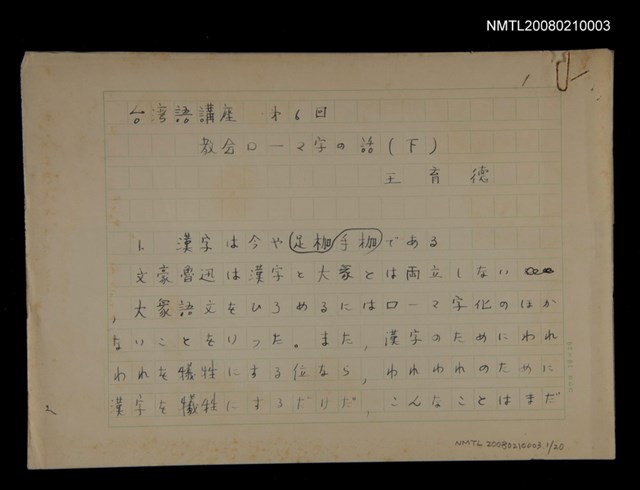 NMTL20080210003
1
台湾語講座 第6回
教会ローマ字の話(下)
王育徳
1. 漢字は今や足枷手枷である
文豪魯迅は漢字と大衆とは両立しない
,大衆語文をひろめるにはローマ字化のほか
ないことをいった。また,漢字のためにわれ
われを犠牲にする位なら,われわれのために
漢字を犠牲にするだけだ,こんなことはまだ
NMTL20080210003.1/20